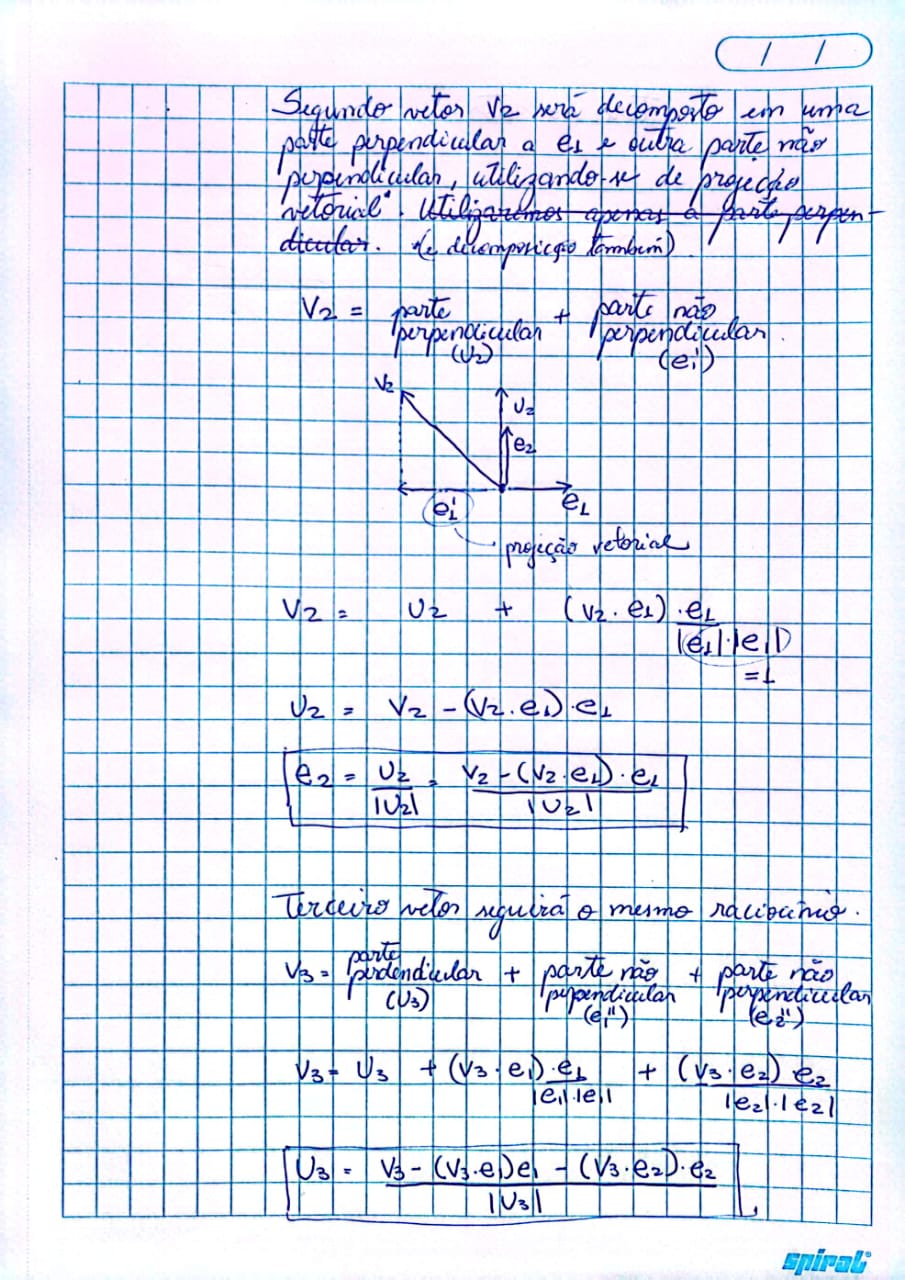 / /
Segundo vetor V2 será decomposto em uma
parte perpendicular a e1 e outra parte não
perpendicular, utilizando-se de projeção
vetorial. Utilizaremos apenas a parte perpen-
dicular. (e decomposição também)
V2 = parte perpendicular (U2) + parte não perpendicular. (e1')
V2
U2
e2
e1' e1
projeção vetorial
V2 = U2 + (V2 . e1) . e1 / |e1|.|e1|
= 1
U2 = V2 - (V2 . e1) . e1
e2 = U2 / |U2| = V2 - (V2 . e1) . e1 / |U2|
Terceiro vetor seguirá o mesmo raciocínio.
V3 = parte perdendicular (U3) + parte não perpendicular (e1'') + parte não perpendicular (e2'')
V3 = U3 + (V3 . e1) . e1 / |e1|.|e1| + (V3 . e2) e2 / |e2|.|e2|
U3 = V3 - (V3.e1)e1 - (V3.e2).e2 / |U3|
spiral®